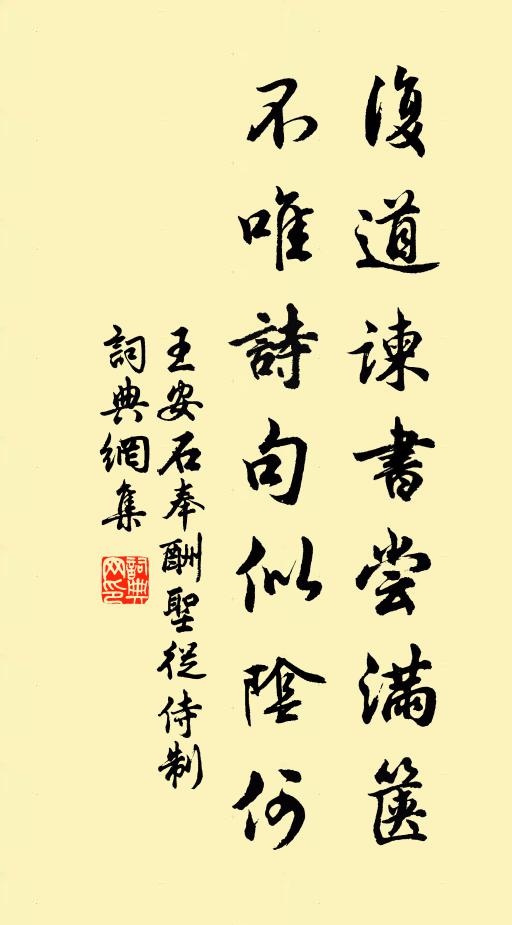 復道諫書嘗滿篋
不唯詩句似陰何
王安石奉酬聖從侍制
詞典網集
詞典网印